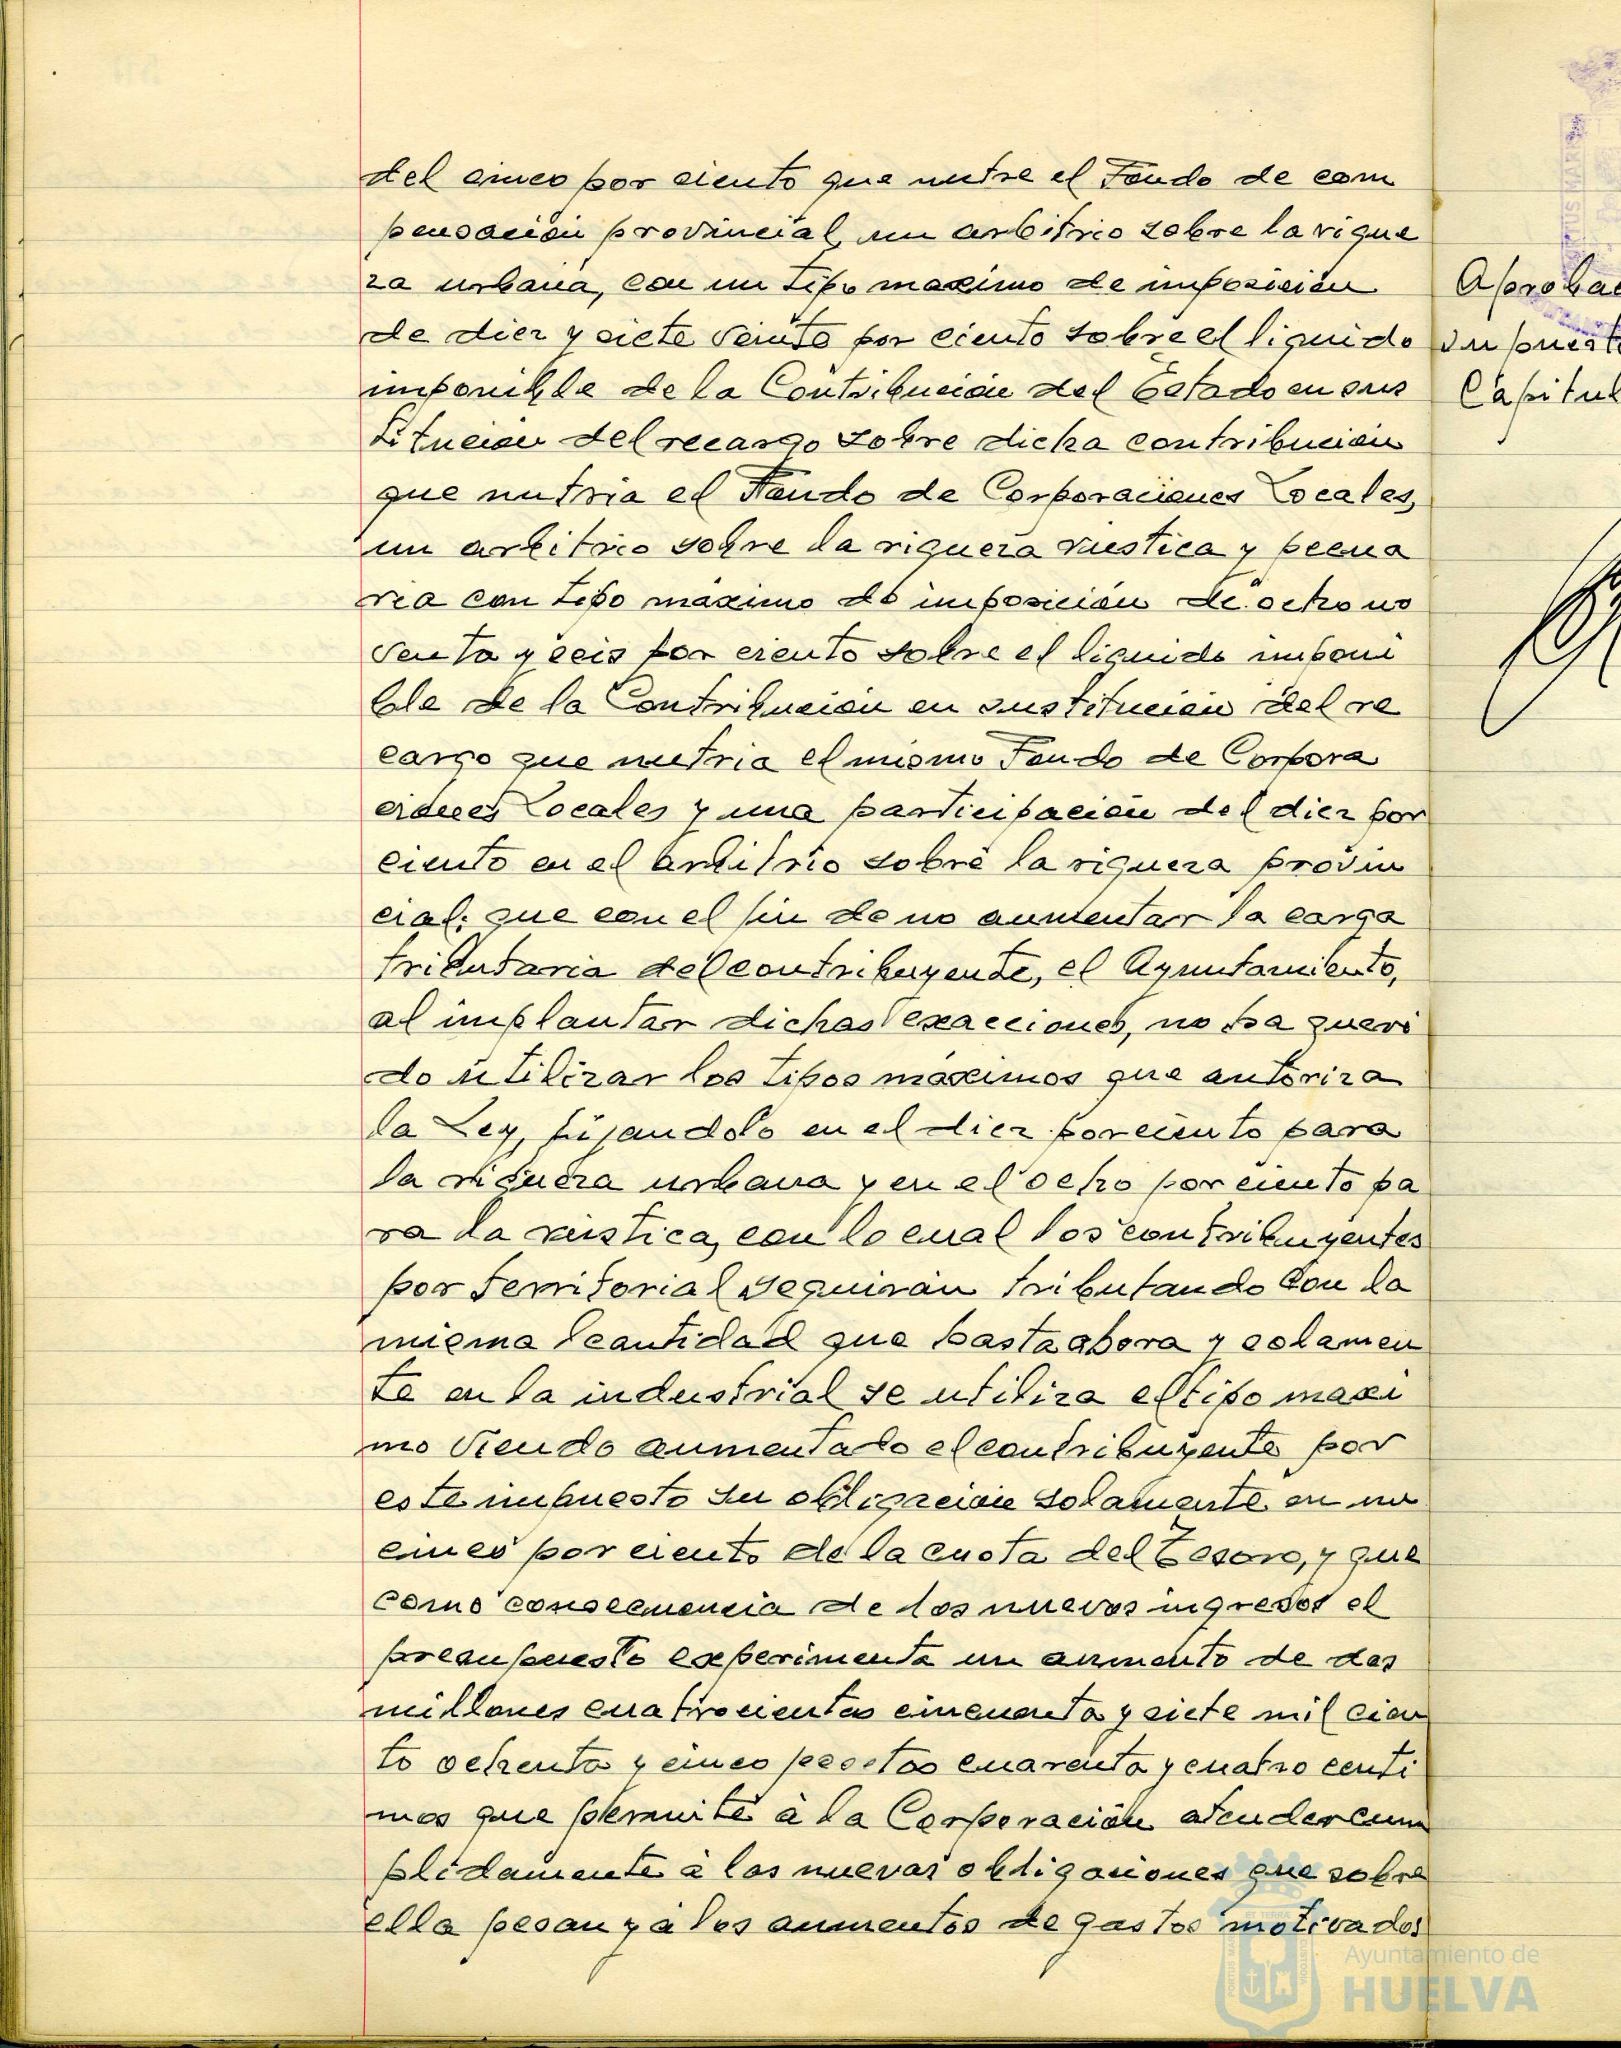 del cinco por ciento que nutre el Fondo de com
pensación provincial, un arbitrio sobre la rique
za urbana, con un tipo maximo de imposición
de diez y siete veinte por ciento sobre el liquido
imponible de la Contribución del Estado en sus
titucion del recargo sobre dicha contribución
que nutria el Fondo de Corporaciones Locales,
un arbitrio sobre la riqueza rústica y pecua
ria con tipo máximo de imposición de ocho no
venta y seis por ciento sobre el liquido imponi
ble de la Contribución en sustitución del re
cargo que nutria el mismo Fondo de Corpora
ciones Locales y una participación del diez por
ciento en el arbitrio sobre la riqueza provin
cial; que con el fin de no aumentar la carga
tributaria del contribuyente, el Ayuntamiento,
al implantar dichas exacciones, no ha queri
do utilizar los tipos máximos que autoriza
la Ley, fijandolo en el diez por ciento para
la riqueza urbana y en el ocho por ciento pa
ra la rústica, con lo cual los contribuyentes
por territorial seguirán tributando con la
misma cantidad que hasta ahora y solamen
te en la industrial se utiliza el tipo maxi
mo viendo aumentado el contribuyente por
este impuesto su obligación solamente en un
cinco por ciento de la cuota del Tesoro, y que
como consecuencia de los nuevos ingresos el
presupuesto experimenta un aumento de dos
millones cuatrocientas cincuenta y siete mil cien
to ochenta y cinco pesetas cuarenta y cuatro centi
mos que permite à la Corporación atender cum
plidamente à las nuevas obligaciones que sobre
ella pesan y à los aumentos de gastos motivados
Aprobac
supuest
Capitul
Ayuntamiento de
HUELVA